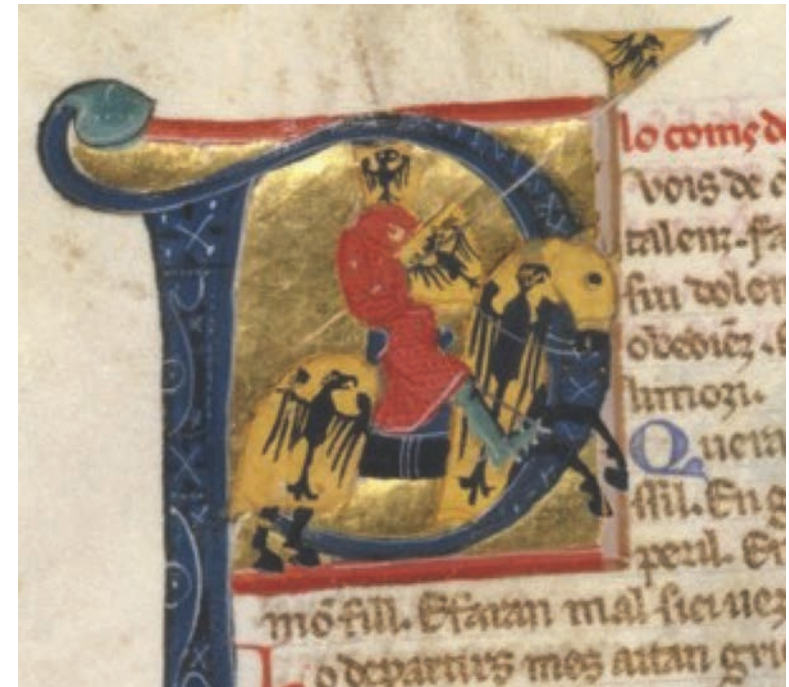 lo coms d
vois de c
talenz. fa
fiu dolen
obediēz.
limozi.
Quera
ssil. En g
peril. En
mō fill. E faran mal siei uez
Lo departirs mes aitan gri